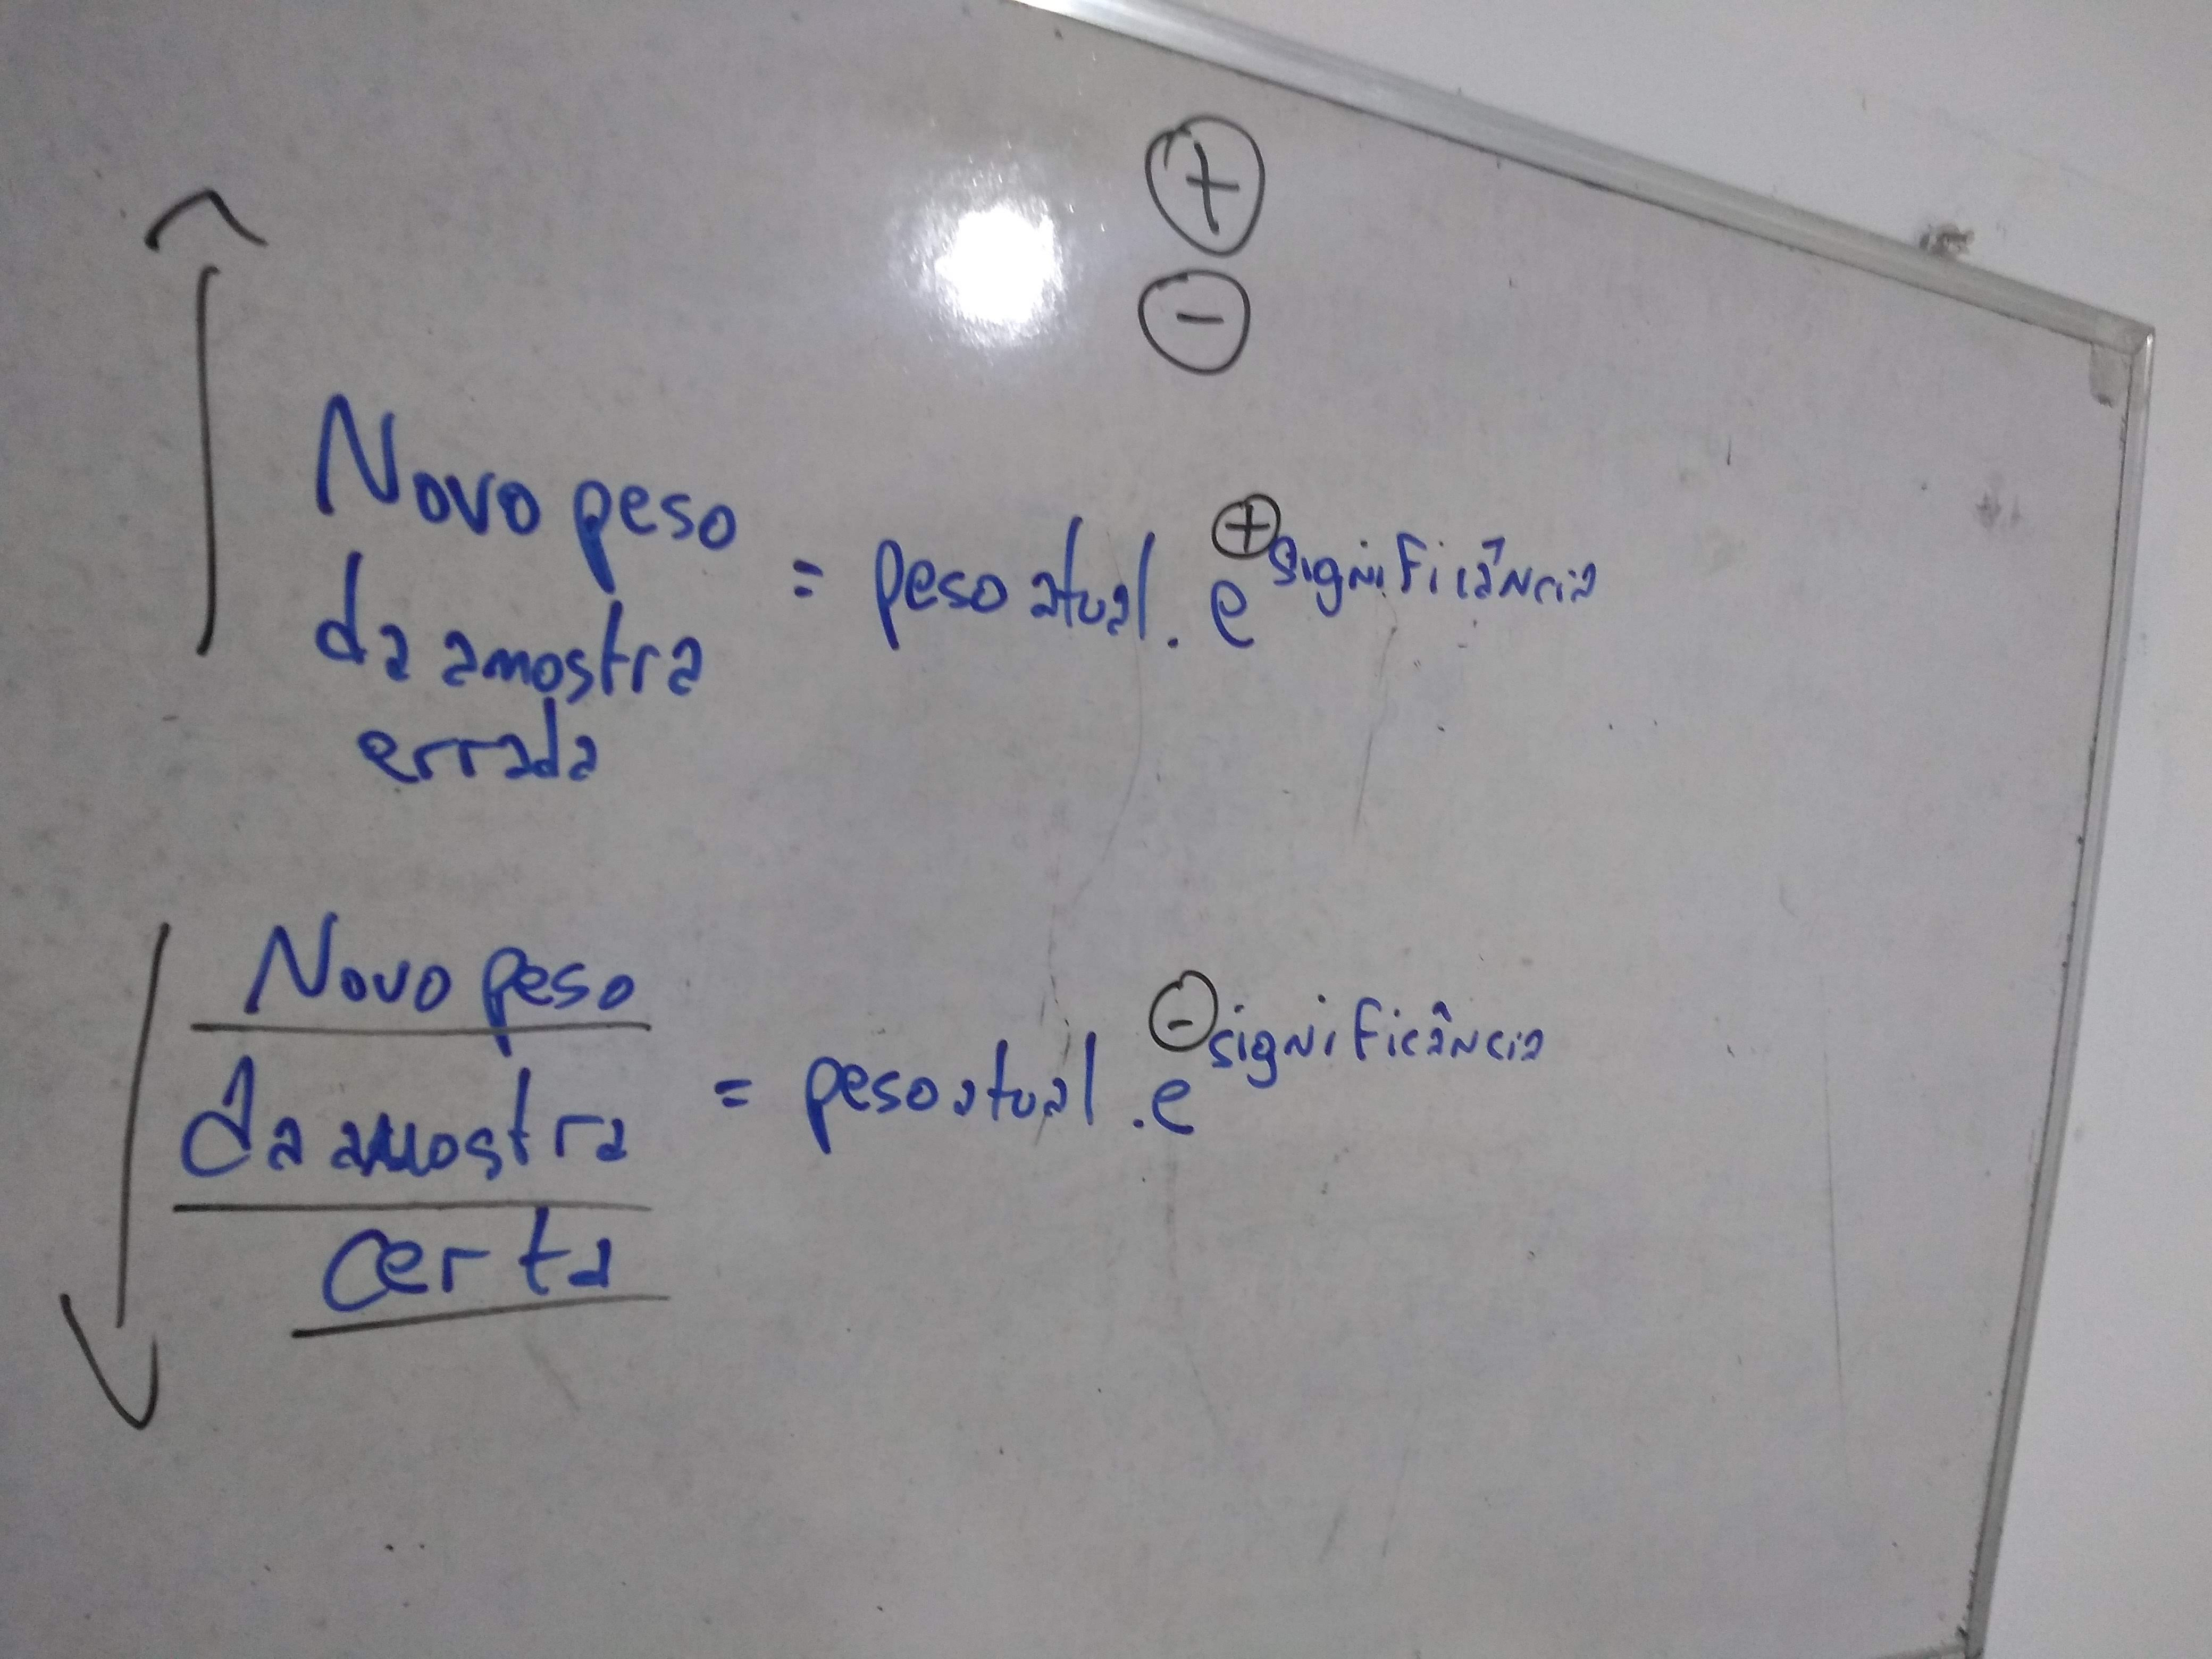 +
-
Novo peso
da amostra
errada
= peso atual . e^+significância
Novo peso
da amostra
certa
= peso atual . e^-significância